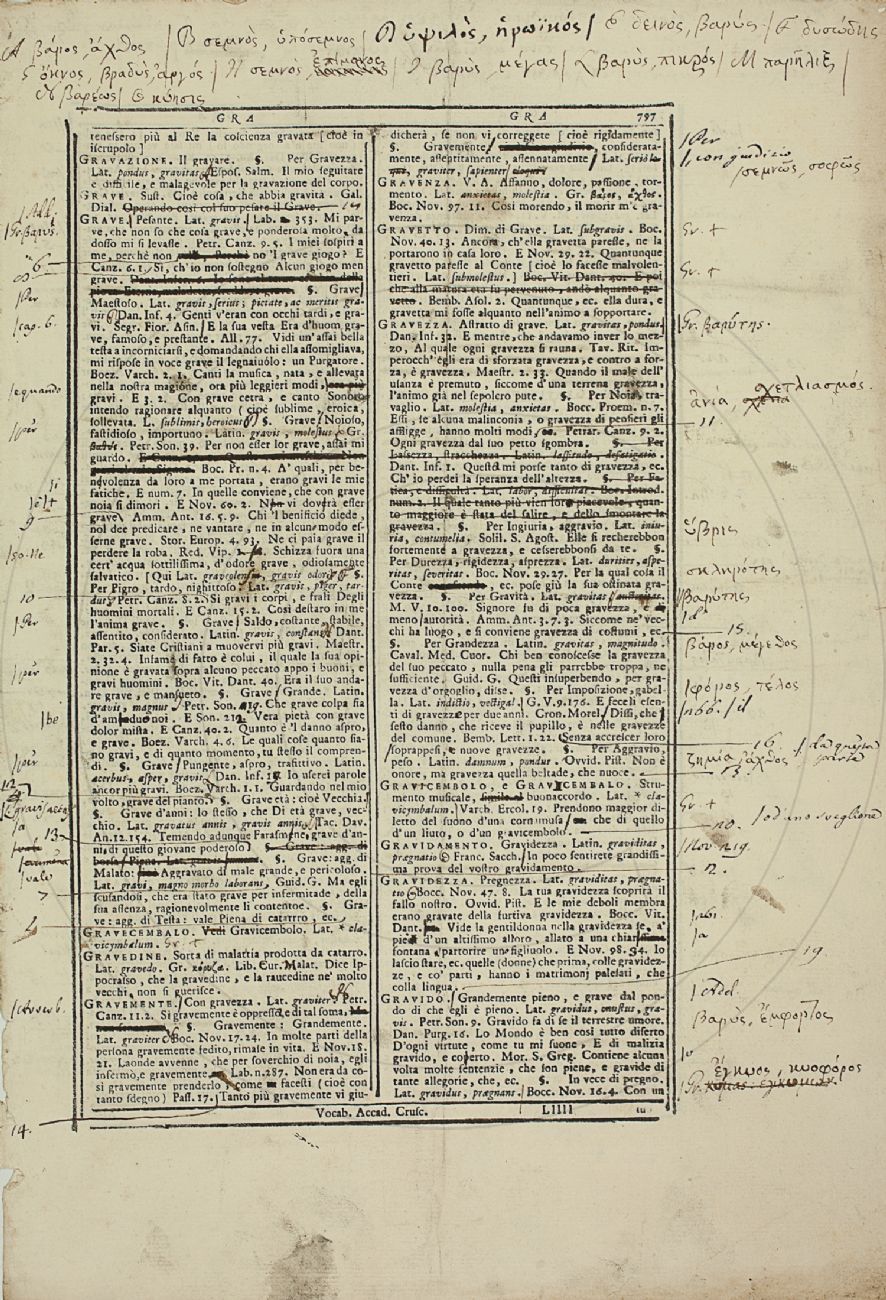 A βάρος, ἄχθος | B σεμνὸς, | ὑψιλὸς, ἡρωϊκός | δεινὸς, βαρύς | δυσώδης
ὄκνος, βραδὺς, ἀργός | H σεμνὸς | βαρὺς, μέγας | βαρὺς, πικρός | M παρήλιξ |
βαρέως | κύησις
GRA
tenessero più al Re la coscienza gravata [cioè in
iscrupolo]
GRAVAZIONE. Il gravare. §. Per Gravezza.
Lat. pondus, gravitas. Espos. Salm. Il mio seguitare
e difficile, e malagevole per la gravazione del corpo.
GRAVE. Sust. Cioè cosa, che abbia gravità. Gal.
Dial. Operando così col suo pesare il Grave.
GRAVE. Pesante. Lat. gravis. Lab. 353. Mi par-
ve, che non so che cosa grave, e ponderosa molto, da
dosso mi si levasse. Petr. Canz. 9. 5. I miei sospiri a
me, perchè non Perchè no 'l grave giogo? E
Canz. 6. 1. Sì, ch'io non sostegno Alcun giogo men
grave. §. Grave
Maestoso. Lat. gravis, serius; pietate, ac meritis gra-
vis Dan. Inf. 4. Genti v'eran con occhi tardi, e gra-
vi. Segr. Fior. Asin. E la sua vesta Era d'huom gra-
ve, famoso, e prestante. All. 77. Vidi un'assai bella
testa a incorniciarsi, e domandando chi ella assomigliava,
mi rispose in voce grave il legnaiuolo: un Purgatore.
Boez. Varch. 2. 1. Canti la musica, nata, e allevata
nella nostra magione, ora più leggieri modi, ora più
gravi. E 3. 2. Con grave cetra, e canto Sonoro
intendo ragionare alquanto (cioè sublime, eroica,
sollevata. L. sublimis, heroicus) §. Grave Noioso,
fastidioso, importuno. Latin. gravis, molestus. Gr.
Petr. Son. 39. Per non esser lor grave, assai mi
guardo.
Boc. Pr. n. 4. A' quali, per be-
nivolenza da loro a me portata, erano gravi le mie
fatiche. E num. 7. In quelle conviene, che con grave
noia si dimori. E Nov. 60. 2. Non vi dovrà esser
grave Amm. Ant. 16. 5. 9. Chi 'l benificio diede,
nol dee predicare, ne vantare, ne in alcun modo es-
serne grave. Stor. Europ. 4. 93. Ne ci paia grave il
perdere la roba. Red. Vip. Schizza fuora una
cert' acqua sottilissima, d'odore grave, odiosamente
salvatico. [Qui Lat. graveolens, gravis odoris] §.
Per Pigro, tardo, nighittoso. Lat. gravis, piger, tar-
dus. Petr. Canz. 8. 2. Si gravi i corpi, e frali Degli
huomini mortali. E Canz. 15. 2. Così destaro in me
l'anima grave. §. Grave Saldo, costante, stabile,
assentito, considerato. Latin. gravis, constans Dant.
Par. 5. Siate Cristiani a muovervi più gravi. Maestr.
2. 32. 4. Infamo di fatto è colui, il quale la sua opi-
nione è gravata sopra alcuno peccato appo i buoni, e
gravi huomini. Boc. Vit. Dant. 40. Era il suo anda-
re grave, e mansueto. §. Grave Grande. Latin.
gravis, magnus Petr. Son. 219. Che grave colpa fia
d'amendue noi. E Son. 212. Vera pietà con grave
dolor mista. E Canz. 40. 2. Quanto è 'l danno aspro,
e grave. Boez. Varch. 4. 6. Le quali cose quanto sia-
no gravi, e di quanto momento, tu stesso il compren-
di. §. Grave Pungente, aspro, trafittivo. Latin.
acerbus, asper, gravis Dan. Inf. 18. Io userei parole
ancor più gravi. Boez. Varch. 1. 1. Guardando nel mio
volto, grave del pianto. §. Grave età: cioè Vecchia.
§. Grave d'anni: lo stesso, che Di età grave, vec-
chio. Lat. gravatus annis, gravis annis Tac. Dav.
An. 12. 154. Temendo adunque Farasmane, grave d'an-
ni di questo giovane poderoso]
§. Grave: agg. di
Malato: Aggravato di male grande, e pericoloso.
Lat. gravi, magno morbo laborans, Guid. G. Ma egli
scusandosi, che era stato grave per infermitade, della
sua assenza, ragionevolmente li contentoe. §. Gra-
ve: agg. di Testa: vale Piena di catarro, ec.
GRAVECEMBALO. Vedi Gravicembalo. Lat. * cla-
vicymbalum. Gr. +
GRAVEDINE. Sorta di malattia prodotta da catarro.
Lat. gravedo. Gr. κόρυζα. Lib. Cur. Malat. Dice Ip-
pocrasso, che la gravedine, e la raucedine ne' molto
vecchi non si guerisce.
GRAVEMENTE. Con gravezza. Lat. graviter Petr.
Canz. 11. 2. Si gravemente è oppressa, e di tal soma,
§. Gravemente: Grandemente.
Lat. graviter Boc. Nov. 17. 24. In molte parti della
persona gravemente fedito, rimase in vita. E Nov. 18.
21. Laonde avvenne, che per soverchio di noia, egli
infermò, e gravemente. Lab. n. 287. Non era da co-
sì gravemente prenderlo, come facesti (cioè con
tanto sdegno) Pass. 17. Tanto più gravemente vi giu-
GRA 797
dicherà, se non vi correggete [cioè rigidamente]
§. Gravemente considerata-
mente, assettitamente, assennatamente Lat. serio
graviter, sapienter
GRAVENZA. V. A. Affanno, dolore, passione, tor-
mento. Lat. anxietas, molestia. Gr. βάρος, ἄχθος.
Boc. Nov. 97. 11. Così morendo, il morir m'è gra-
venza.
GRAVETTO. Dim. di Grave. Lat. subgravis. Boc.
Nov. 40. 13. Ancora, ch'ella gravetta paresse, ne la
portarono in casa loro. E Nov. 29. 22. Quantunque
gravetto paresse al Conte [cioè lo facesse malvolen-
tieri. Lat. submolestus.] Boc. Vit. Dant. 227. E poi
che alla matura età fu pervenuto, andò alquanto gra-
vetto. Bemb. Asol. 2. Quantunque, ec. ella dura, e
gravetta mi fosse alquanto nell'animo a sopportare.
GRAVEZZA. Astratto di grave. Lat. gravitas, pondus.
Dan. Inf. 32. E mentre, che andavamo inver lo mez-
zo, Al quale ogni gravezza si rauna. Tav. Rit. Im-
perocch'egli era di sforzata gravezza, e contro a for-
za, è gravezza. Maestr. 2. 33. Quando il male dell'
usanza è premuto, siccome d'una terrena gravezza,
l'animo già nel sepolcro pute. §. Per Noia, tra-
vaglio. Lat. molestia, anxietas. Bocc. Proem. n. 7.
Essi, se alcuna malinconia, o gravezza di pensieri gli
affligge, hanno molti modi, ec. Petrar. Canz. 9. 2.
Ogni gravezza dal suo petto sgombra. §. Per
Lassezza, stracchezza. Latin. lassitudo, defatigatio.
Dant. Inf. 1. Questa mi porse tanto di gravezza, ec.
Ch'io perdei la speranza dell'altezza. §. Per Fa-
tica, e difficultà. Lat. labor, difficultas. Boc. Introd.
num. 2. Il quale tanto più vien loro piacevole, quan-
to maggiore è stata del salire, e dello smontare la
gravezza. §. Per Ingiuria, aggravio. Lat. iniu-
ria, contumelia. Solil. S. Agost. Elle si recherebbon
fortemente a gravezza, e cesserebbonsi da te. §.
Per Durezza, rigidezza, asprezza. Lat. durities, aspe-
ritas, severitas. Boc. Nov. 29. 27. Per la qual cosa il
Conte ec. pose giù la sua ostinata gra-
vezza. §. Per Gravità. Lat. gravitas
M. V. 10. 100. Signore fu di poca gravezza, e di
meno autorità. Amm. Ant. 3. 7. 3. Siccome ne' vec-
chi ha luogo, e si conviene gravezza di costumi, ec.
§. Per Grandezza. Latin. gravitas, magnitudo.
Caval. Med. Cuor. Chi ben conoscesse la gravezza
del suo peccato, nulla pena gli parrebbe troppa, ne
sufficiente. Guid. G. Questi insuperbendo, per gra-
vezza d'orgoglio, disse. §. Per Imposizione, gabel-
la. Lat. indictio, vectigal. G. V. 9. 176. E feceli esen-
ti di gravezze per due anni. Cron. Morel. Dissi, che l
sesto danno, che riceve il pupillo, è nelle gravezze
del comune. Bemb. Lett. 1. 22. Senza accrescer loro
soprappesi, e nuove gravezze. §. Per Aggravio,
peso. Latin. damnum, pondus. Ovvid. Pist. Non è
onore, ma gravezza quella beltade, che nuoce.
GRAVICEMBOLO, e GRAVICEMBALO. Stru-
mento musicale, buonaccordo. Lat. * cla-
vicymbalum. Varch. Ercol. 19. Prendono maggior di-
letto del suono d'una cornamusa che di quello
d'un liuto, o d'un gravicembolo.
GRAVIDAMENTO. Gravidezza. Latin. graviditas,
prægnatio Franc. Sacch. In poco sentirete grandissi-
ma prova del vostro gravidamento.
GRAVIDEZZA. Pregnezza. Lat. graviditas, prægna-
tio Bocc. Nov. 47. 8. La tua gravidezza scoprirà il
fallo nostro. Ovvid. Pist. E le mie deboli membra
erano gravate della furtiva gravidezza. Bocc. Vit.
Dant. Vide la gentildonna nella gravidezza se, a'
piedi d'un altissimo alloro, allato a una chiarissima
fontana partorire un figliuolo. E Nov. 98. 34. Io
lascio stare, ec. quelle (donne) che prima, colle gravidez-
ze, e co' parti, hanno i matrimonj palesati, che
colla lingua.
GRAVIDO. Grandemente pieno, e grave dal pon-
do di che egli è pieno. Lat. gravidus, onustus, gra-
vis. Petr. Son. 9. Gravido fa di se il terrestre umore.
Dan. Purg. 16. Lo Mondo è ben così tutto diserto
D'ogni virtute, come tu mi suone, E di malizia
gravido, e coperto. Mor. S. Greg. Contiene alcuna
volta molte sentenzie, che son piene, e gravide di
tante allegorie, che, ec. §. In vece di pregno.
Lat. gravidus, prægnans. Bocc. Nov. 16. 4. Con un
Vocab. Accad. Crusc. Llll tu
6
cap. 6.
9
10
12
13
7
14.
Per
con giudizio
σεμνῶς, σοφῶς
Gr. +
Gr. +
Gr. βαρύτης.
ἀνία, σχετλιασμός.
11.
ὕβρις
σκληρότης
βαρύτης
15.
βάρος, μέγεθος
φόρος, τέλος
16
ζημία, ἄχθος
Gr. +
Nov. 19.
2.
19
Add.
βαρὺς, ἔμφορτος
ἔγκυος, κυοφόρος